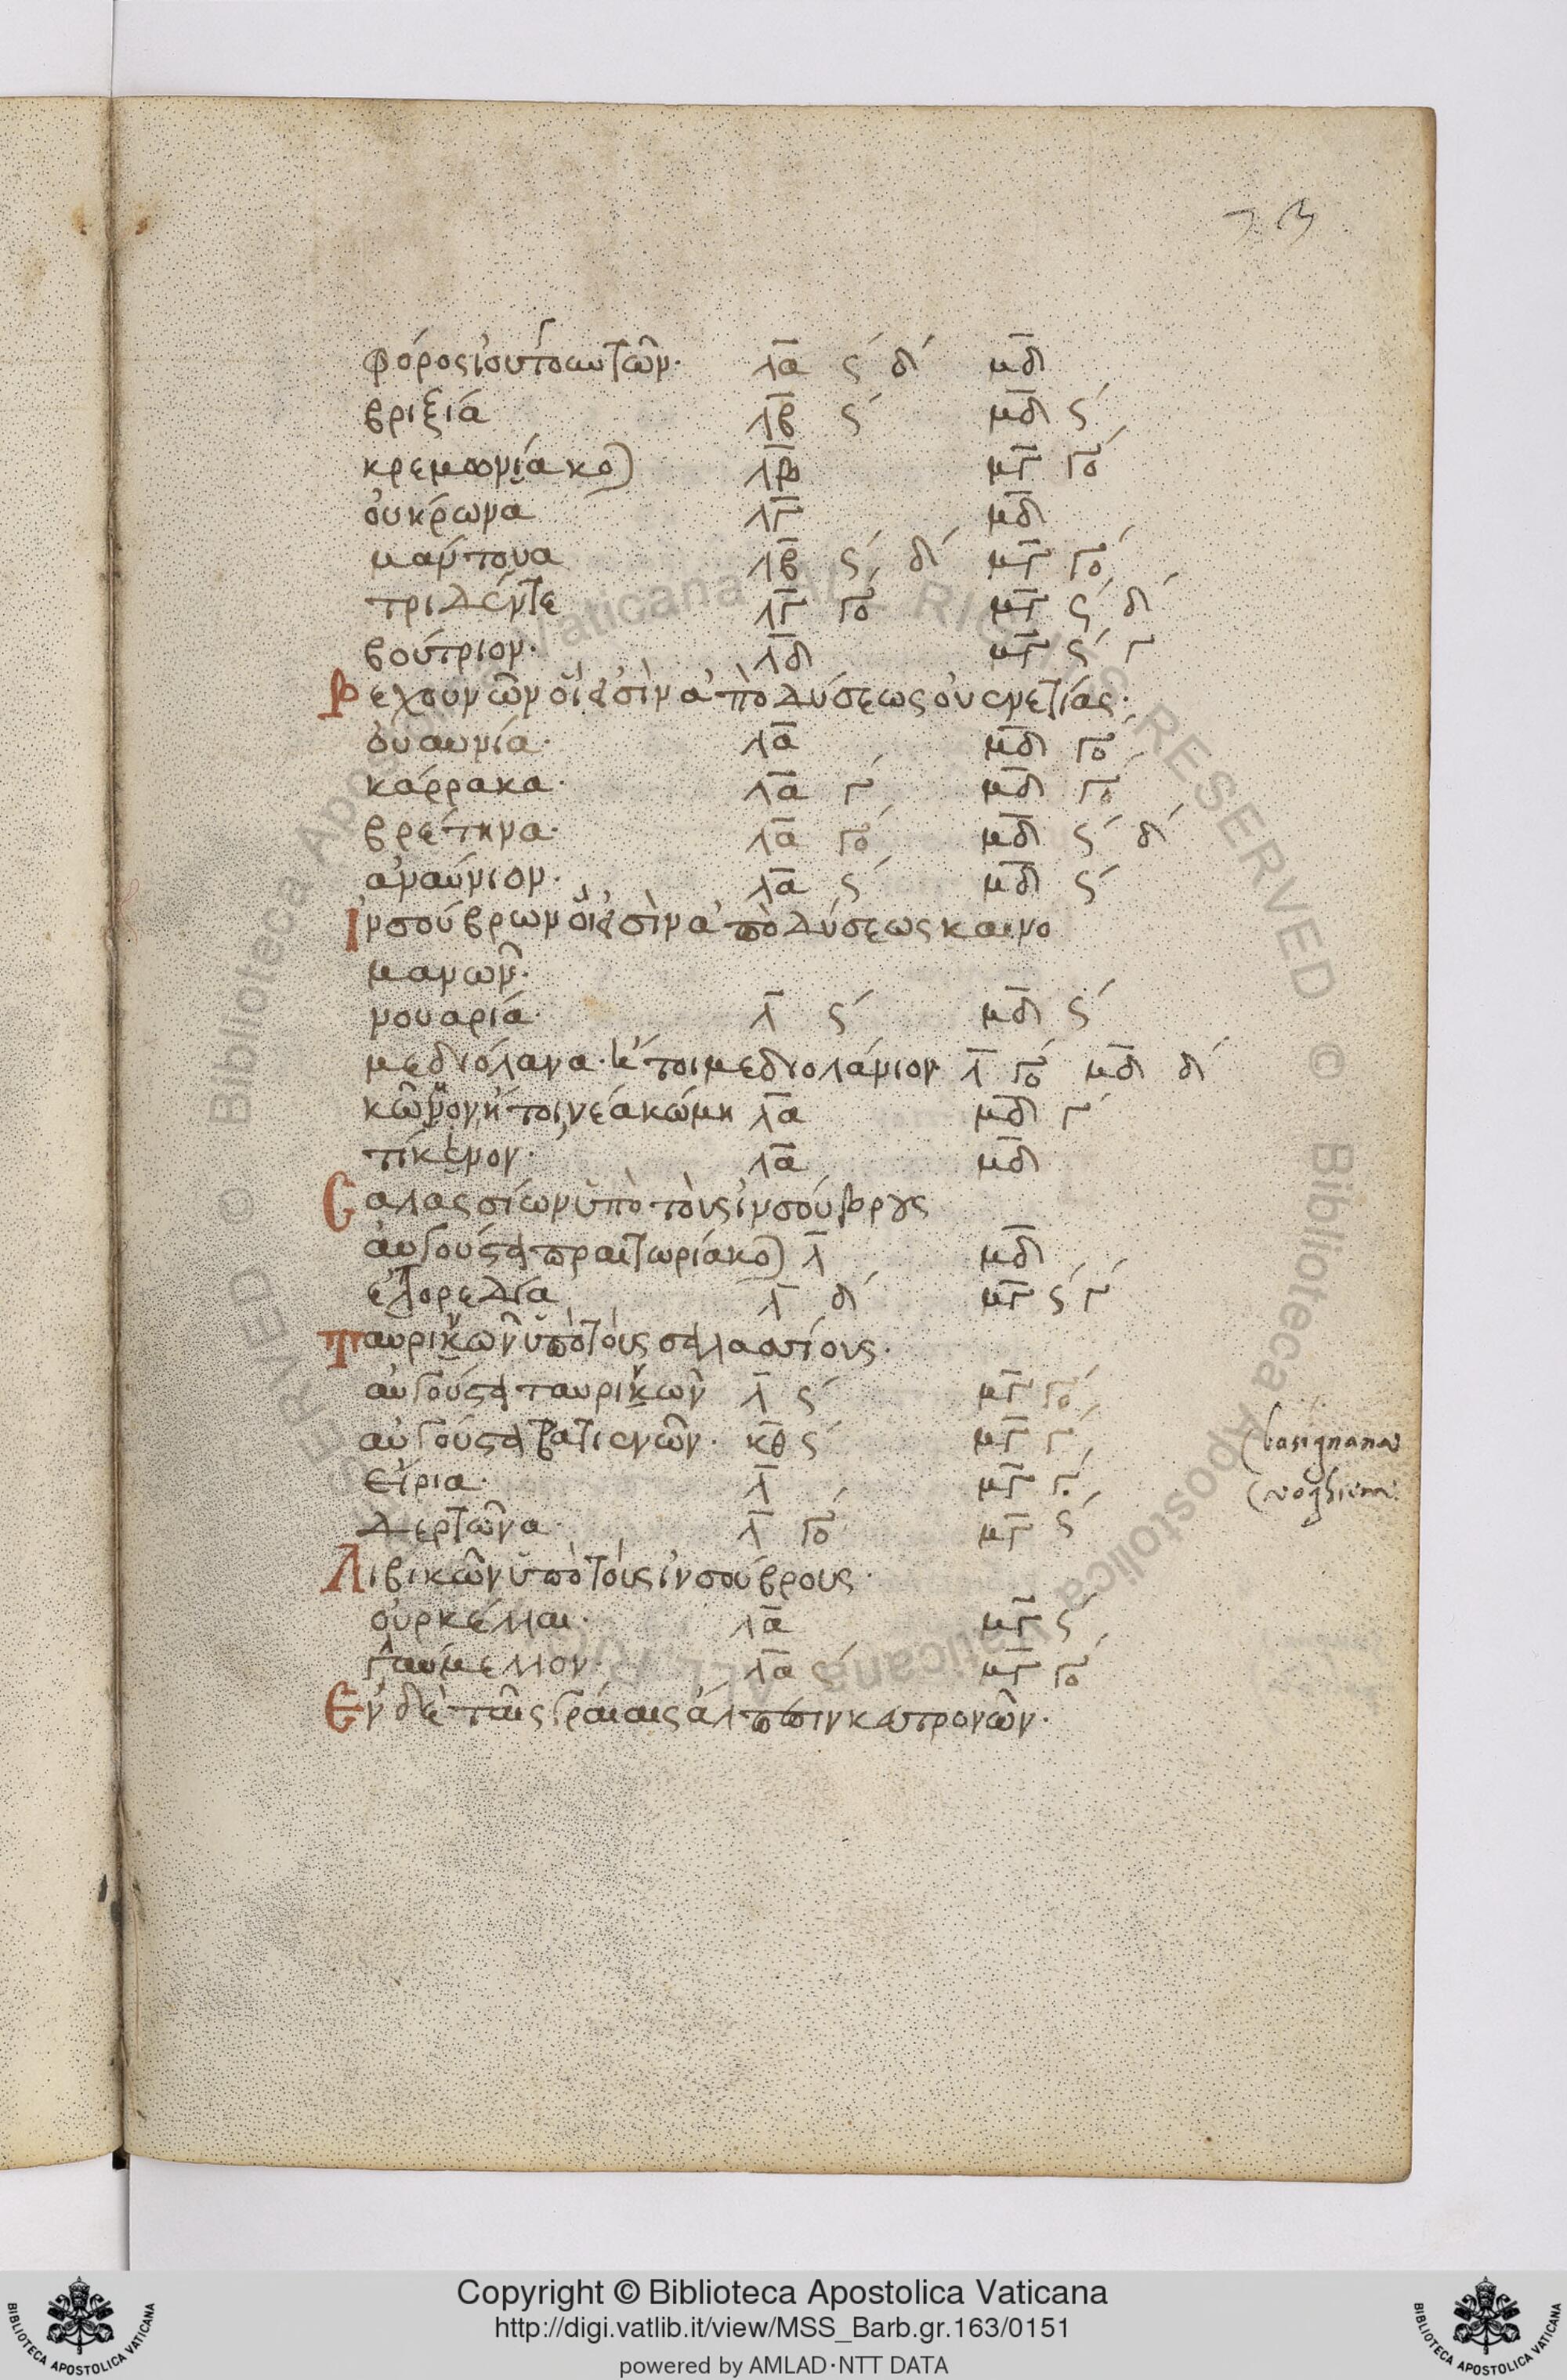 73
φόρος ἰουτουντῶν· λα ς´ δ´ μδ
βριξιά λβ ς´ μδ ς´
κρεμωνία κο) λβ μγ γο´
οὐκρωνα λγ μδ
μάντουα λβ ς´ δ´ μγ γο´
τριδέντε λγ γο´ μγ ς´ δ´
βούτριον· λδ μγ ς´ γ
Βεχουνῶν οἵ εἰσὶν ἀπὸ δύσεως οὐενετίας·
οὐαωνία· λα μδ γο´
κάρρακα· λα γ´ μδ γο´
βρέτηνα· λα γο´ μδ ς´ δ´
ἀναύνιον· λα ς´ μδ ς´
Ἰνσούβρων οἵ εἰσὶν ἀπὸ δύσεως καινο
μανῶν·
νουαριά· λ ς´ μδ ς´
μεδιόλανα· ἤτοι μεδιολάνιον λ γο´ μδ δ´
κῶμον ἤτοι νέα κώμη λα μδ γ´
τίκινον· λα μδ
Σαλασσίων ὑπὸ τοὺς ἰνσούβρους
αὐγούστα πραιτωρία κο) λ μδ
ἐπορεδία λ δ´ μγ ς´ γ´
Ταυρινῶν ὑπὸ τοὺς σαλασσίους·
αὐγούστα ταυρινῶν λ ς´ μγ γο´
αὐγούστα βατιενῶν· κθ ς´ μγ γ´
(basignana
εἴρια· λ μγ γ´
(voghiera
δερτῶνα· λ γο´ μγ ς´
Λιβικῶν ὑπὸ τοὺς ἰνσούβρους·
οὐρκέλλαι· λα μγ ς´
γαύμελλον· λα ς´ μγ γο´
Ἐν δὲ ταῖς γραίαις ἄλπεσιν καστρονῶν·
Copyright © Biblioteca Apostolica Vaticana
http://digi.vatlib.it/view/MSS_Barb.gr.163/0151
powered by AMLAD·NTT DATA